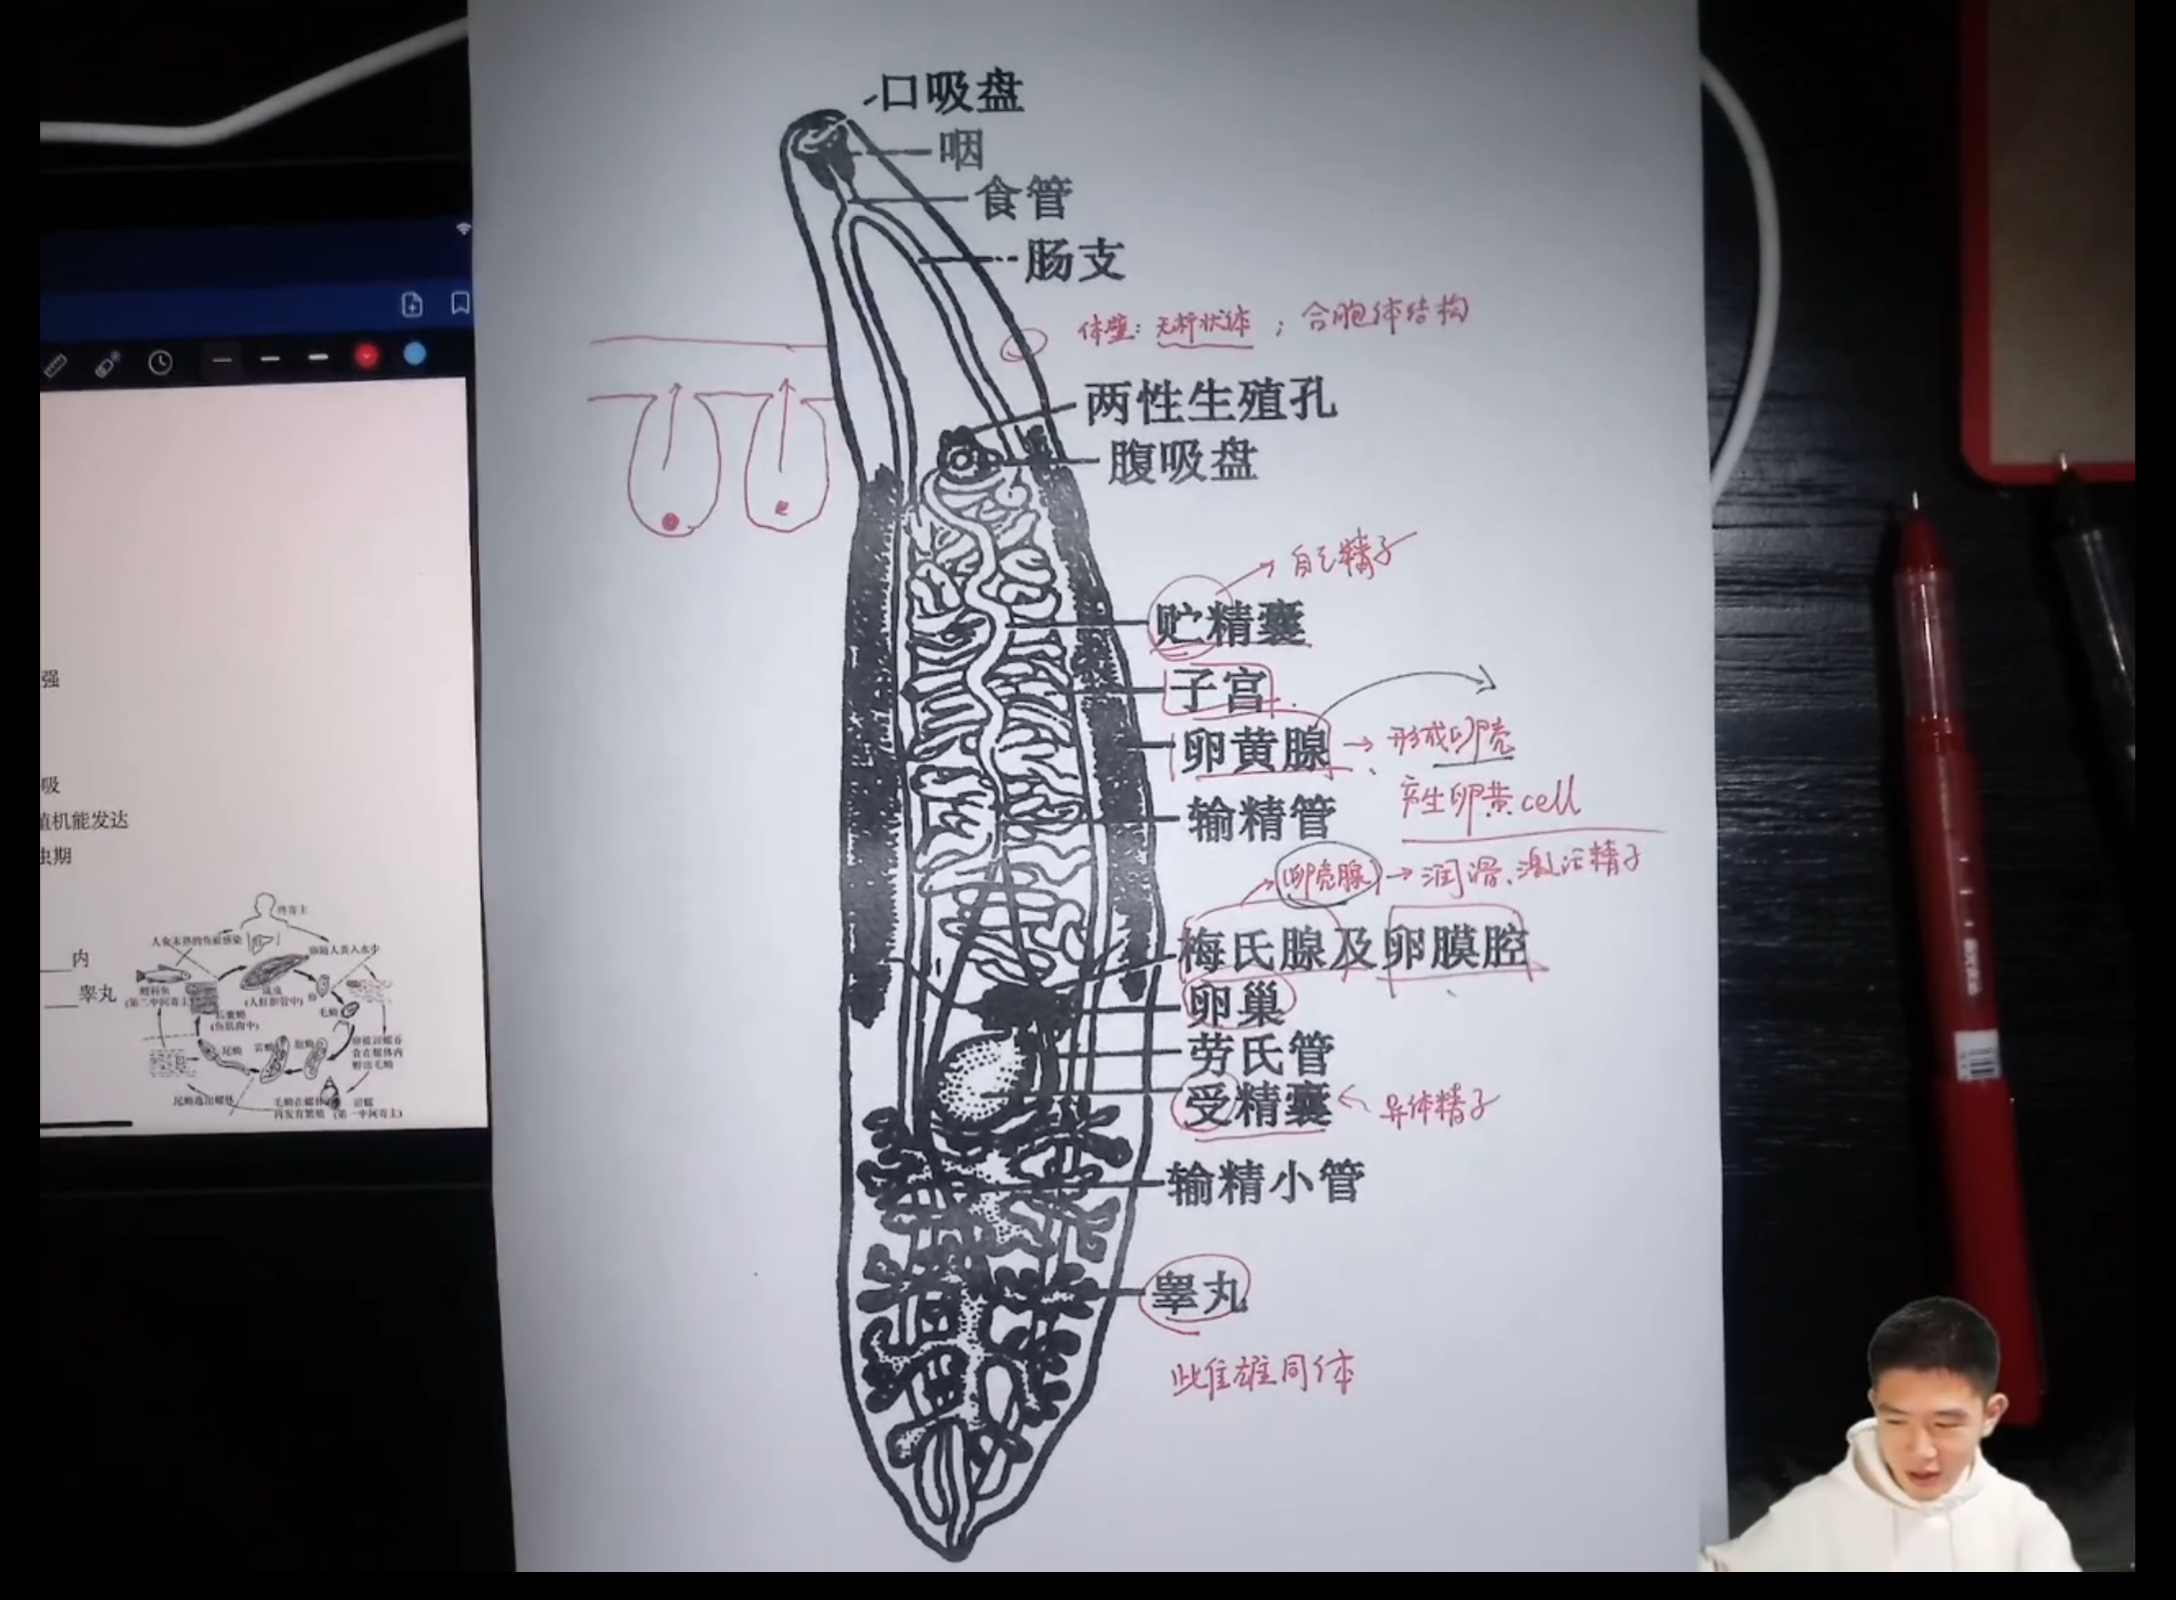 口吸盘
咽
食管
肠支
体壁：无杆状体；合胞体结构
两性生殖孔
腹吸盘
自己精子
贮精囊
子宫
卵黄腺 → 形成卵壳
产生卵黄cell
输精管
(卵壳腺) → 润滑、激活精子
梅氏腺及卵膜腔
卵巢
劳氏管
受精囊 ← 异体精子
输精小管
睾丸
雌雄同体
强
吸
殖机能发达
虫期
内
睾丸
终寄主
人食未熟的鱼被感染
成虫
(人肝胆管中)
卵
毛蚴
(第二中间寄主)
后囊蚴
(鱼肌肉中)
尾蚴
雷蚴
胞蚴
卵被沼螺吞
食在螺体内
孵出毛蚴
尾蚴逸出螺体
毛蚴在螺体
内发育繁殖
沼螺
(第一中间寄主)